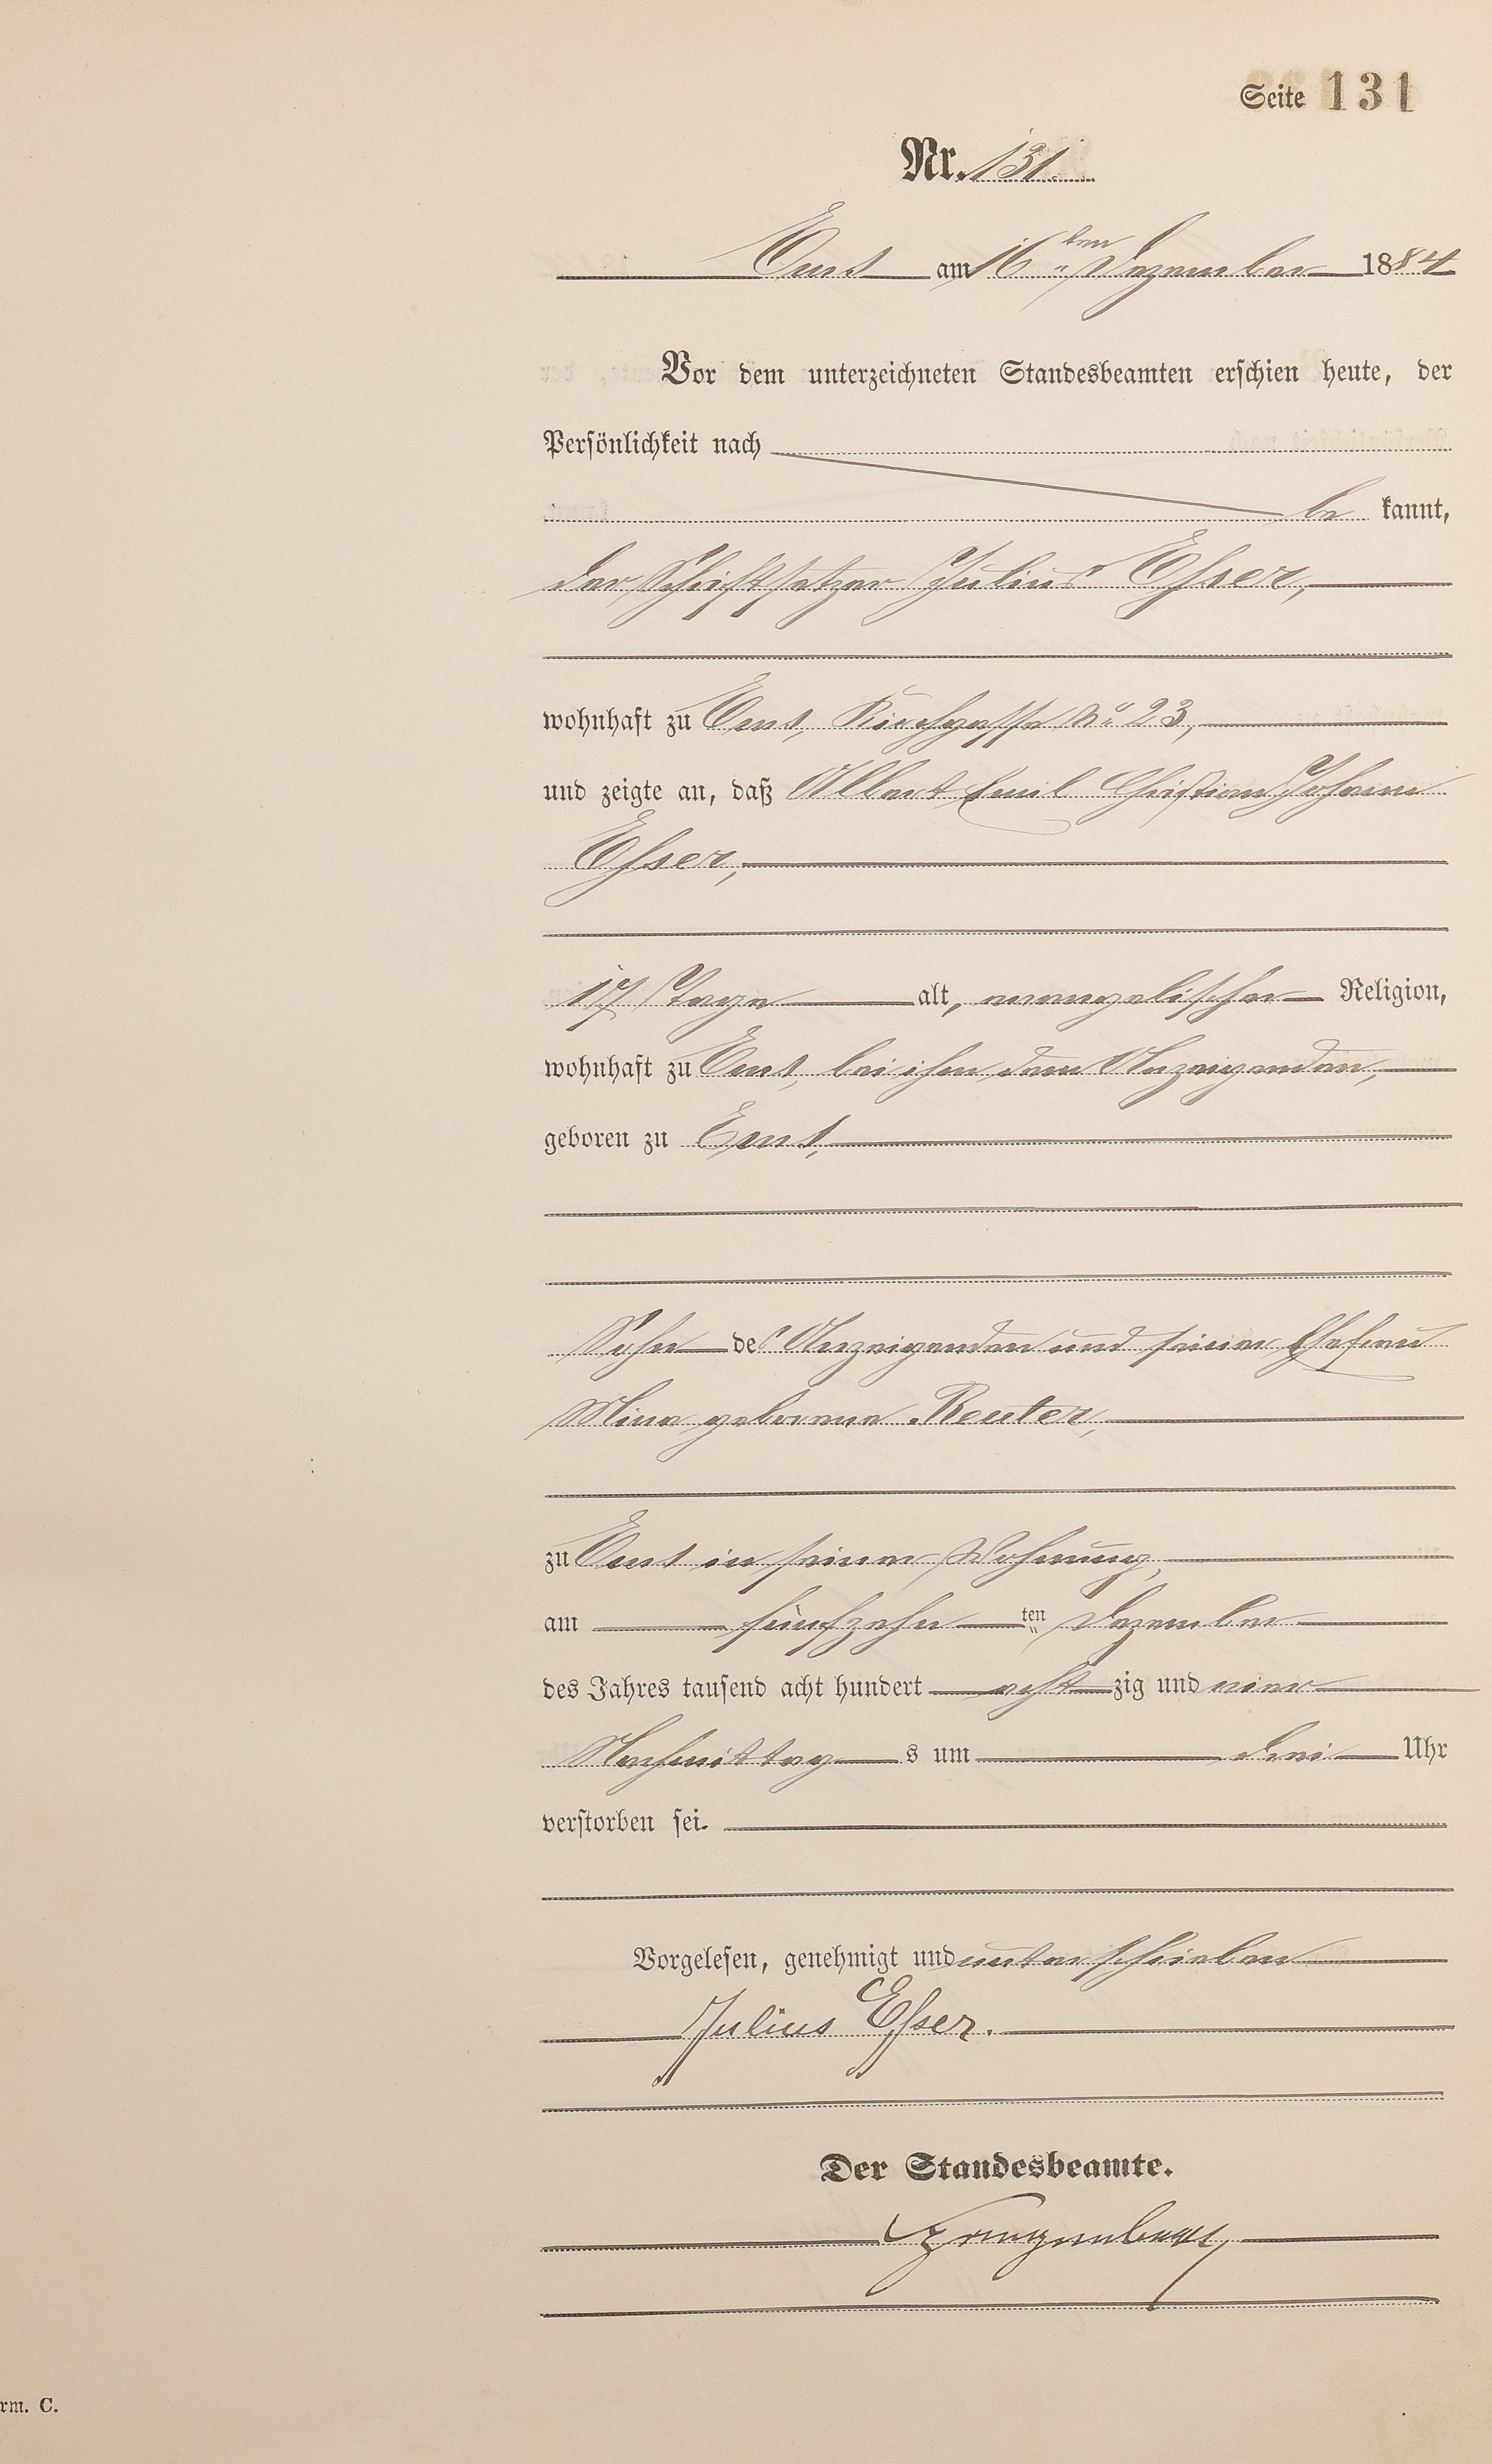 Seite 131
Nr. 131.
Ems am 16ten Dezember 1884
Vor dem unterzeichneten Standesbeamten erschien heute, der
Persönlichkeit nach
be kannt,
der Schriftsetzer Julius Esser,
wohnhaft zu Ems, Kirchgasse No 23,
und zeigte an, daß Albert Emil Christian Johann
Esser,
17 Tage alt, evangelischer Religion,
wohnhaft zu Ems, bei ihm dem Anzeigenden,
geboren zu Ems,
Sohn des Anzeigenden und seiner Ehefrau
Mina geborene Reuter,
zu Ems in seiner Wohnung,
am fünfzehn ten Dezember
des Jahres tausend acht hundert acht zig und vier
Nachmittag s um drei Uhr
verstorben sei.
Vorgelesen, genehmigt und unterschrieben
Julius Esser.
Der Standesbeamte.
rm. C.